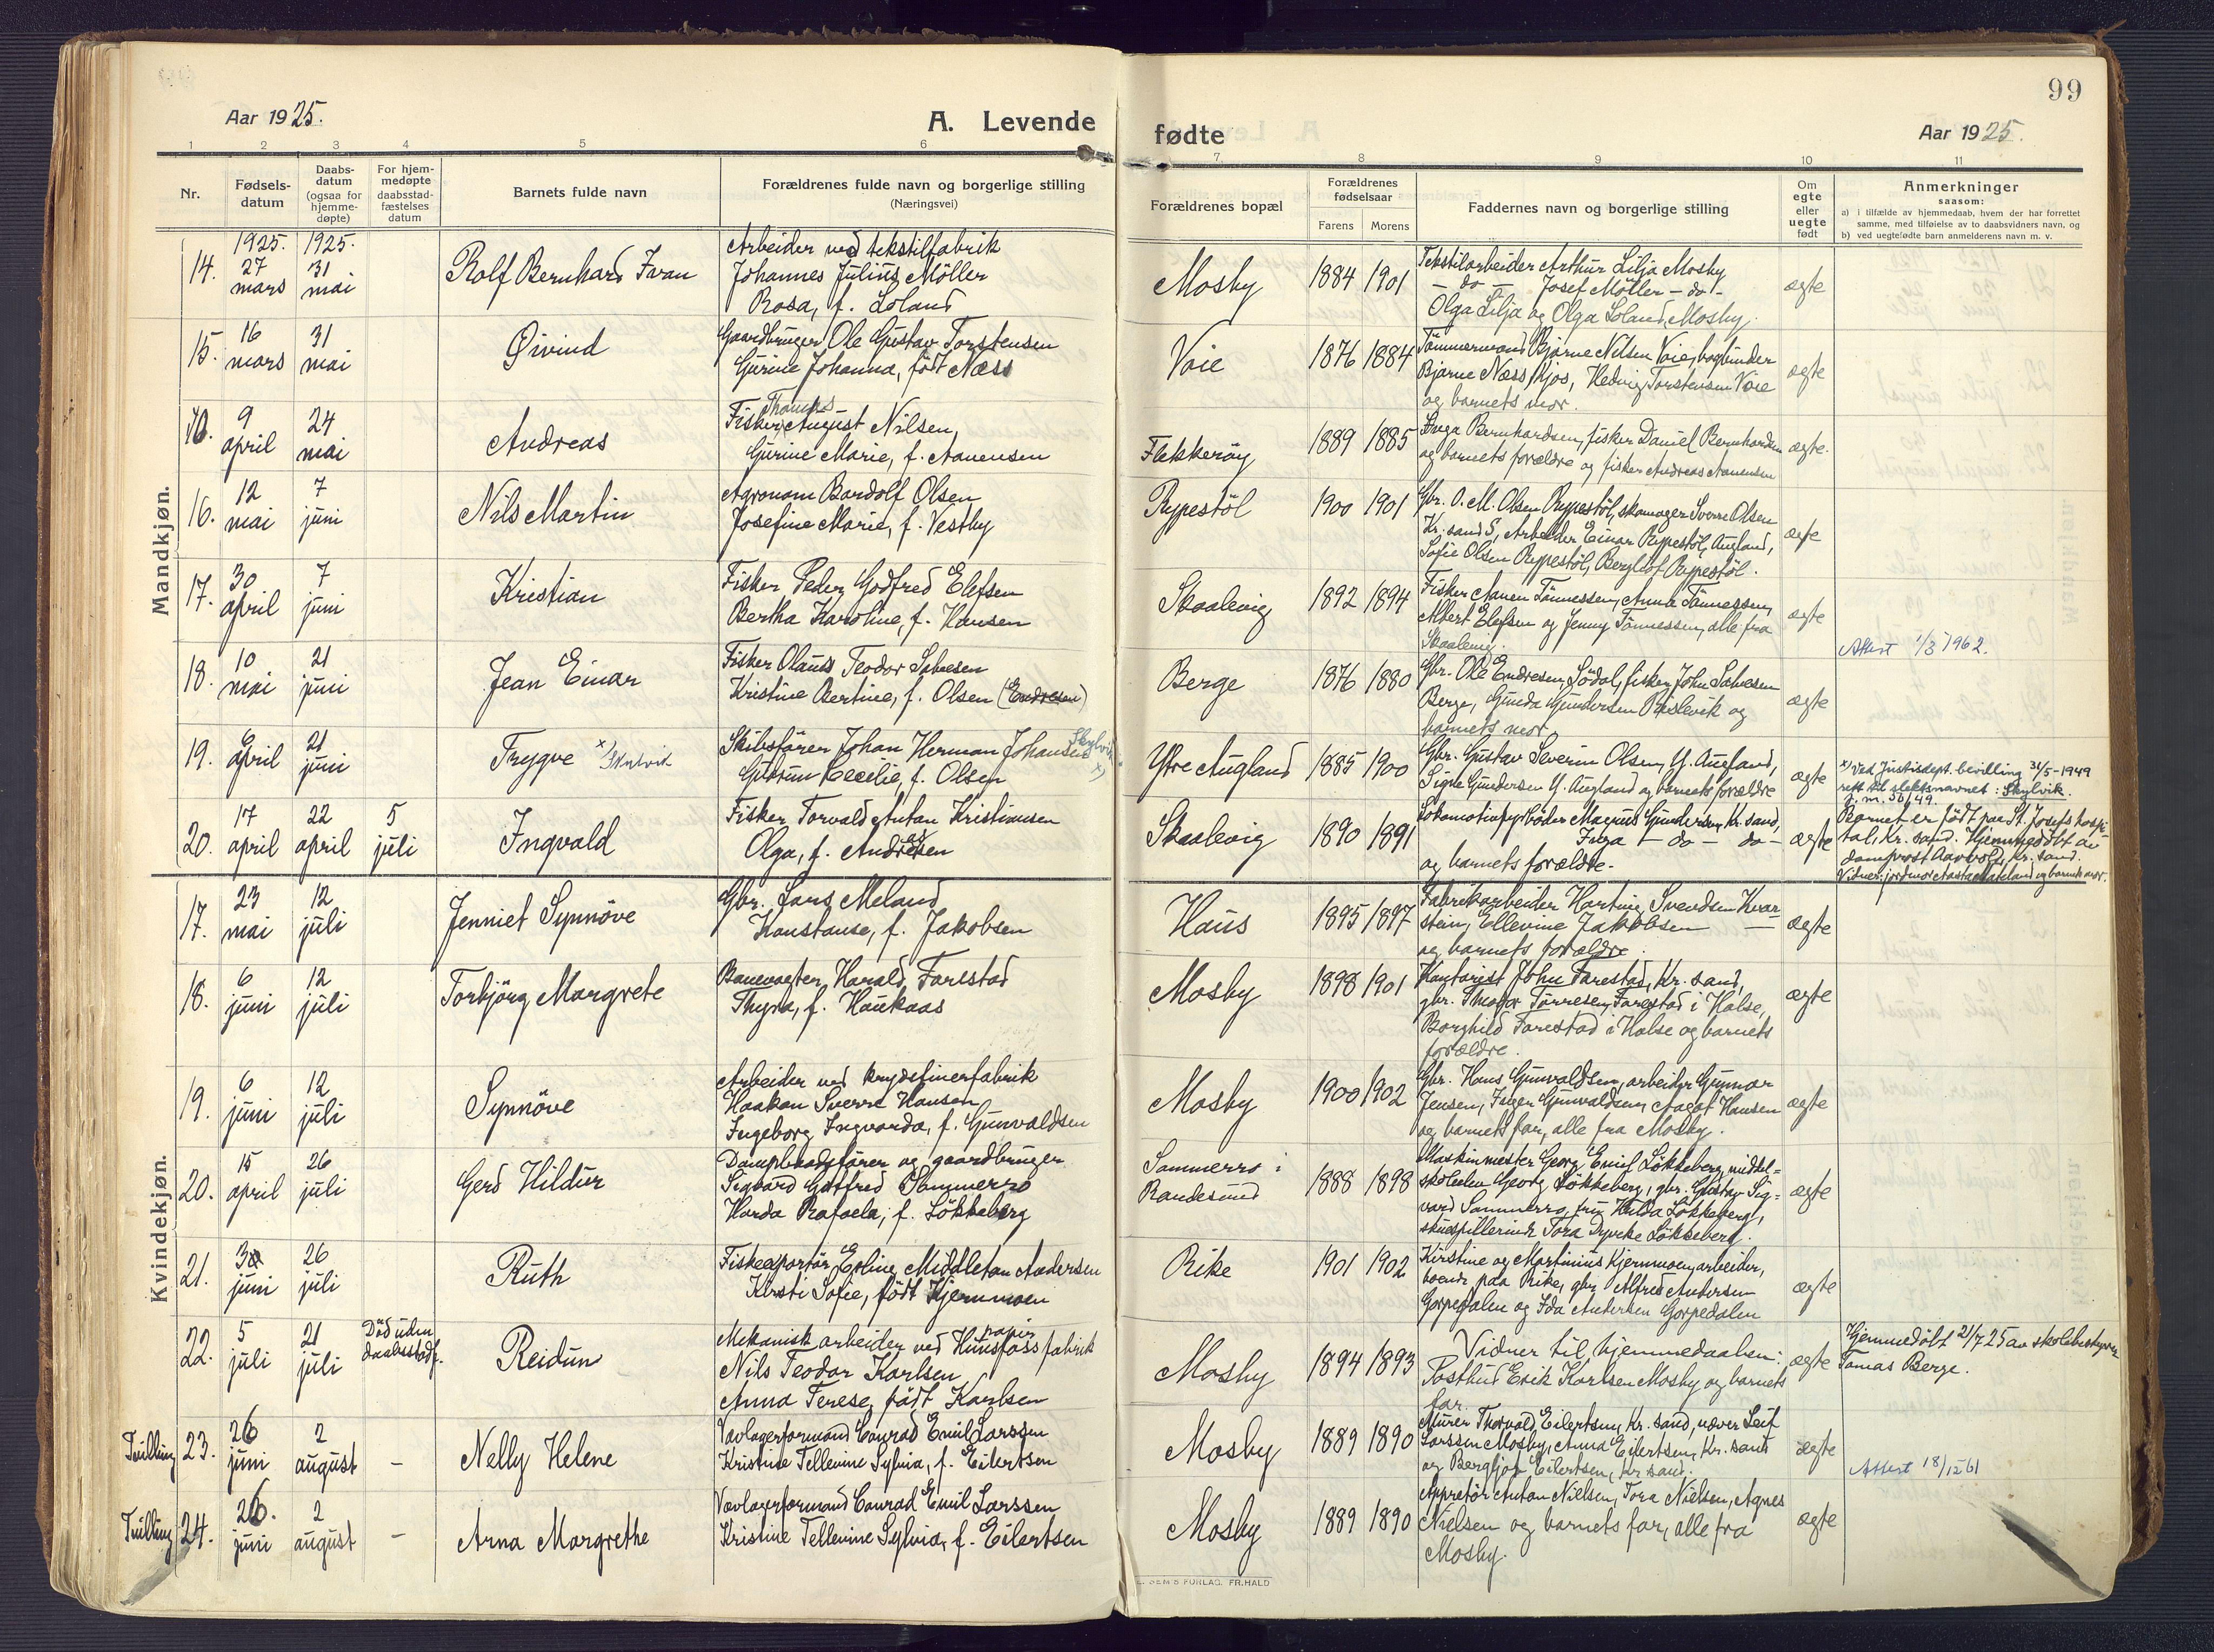 99
Aar 1925.
A. Levende
fødte
Aar 1925.
1 2 3 4 5 6 7 8 9 10 11
Nr.
Fødsels-
datum
Daabs-
datum
(ogsaa for
hjemme-
døpte)
For hjem-
medøpte
daabsstad-
fæstelses
datum
Barnets fulde navn
Forældrenes fulde navn og borgerlige stilling
(Næringsvei)
Forældrenes bopæl
Forældrenes
fødselsaar
Farens Morens
Faddernes navn og borgerlige stilling
Om
egte
eller
uegte
født
Anmerkninger
saasom:
a) i tilfælde av hjemmedaab, hvem der har forrettet
samme, med tilføielse av to daabsvidners navn, og
b) ved uegtefødte barn anmelderens navn m. v.
Mandkjøn.
14.
1925.
27
mars
1925.
31
mai
Rolf Bernhard Ivan
Arbeider ved tekstilfabrik
Johannes Julius Möller
Rosa, f. Loland
Mosby
1884 1901
Tekstilarbeider Arthur Lilja Mosby
– do – Josef Möller – do –
Olga Lilja og Olga Loland, Mosby.
ægte
15.
16
mars
31
mai
Øivind
Gaardbruger Ole Gustav Torstensen
Gurine Johanna, født Næss
Voie
1876 1884
Tömmermand Bjarne Nilsen Voie, bogbinder
Bjarne Næss, Kjos, Hedvig Torstensen Voie
og barnets mor.
ægte
9
april
24
mai
Andreas
Thomas
Fisker August Nilsen
Gurine Marie, f. Aanensen
Flekkeröy
1889 1885
Inga Bernhardsen, fisker Daniel Bernhardsen
og barnets forældre og fisker Andreas Aanensen
ægte.
16.
12
mai
7
juni
Nils Martin
Agronom Bardolf Olsen
Josefine Marie, f. Vestby
Rypestöl
1900 1901
Gbr. O. M. Olsen Rypestöl, skomager Sverre Olsen
Kr.sand S, Arbeider Einar Rypestöl, Augland,
Sofie Olsen Rypestöl, Rypestöl.
ægte
17.
30
april
7
juni
Kristian
Fisker Peder Godfred Elefsen
Bertha Karoline, f. Hansen
Skaalevig
1892 1894
Fisker Aanen Tönnessen, Anna Tönnessen,
Albert Elefsen og Jenny Tönnessen, alle fra
Skaalevig.
ægte
Attest 1/3 1962.
18.
10
mai
21
juni
Jean Einar
Fisker Olaus Teodor Salvesen
Kristine Bertine, f. Olsen (Endresen)
Berge
1876 1880
Gbr. Ole Endresen, Södal, fisker John Salvesen
Berge, Gunda Gundersen og
barnets mor.
ægte
19.
6
april
21
juni
Trygve x) Skylvik
Skibsfører Johan Herman Johansen Skylvik x)
Gudrun Cecilie, f. Olsen
Ytre Augland
1885 1900
Gbr. Gustav Severin Olsen, Y. Augland,
Signe Gundersen Y. Augland og barnets forældre
ægte
x) Ved Justisdept. bevilling 31/5-1949
rett til slektsnavnet: Skylvik.
j. m. 56/49.
20.
17
april
22
april
5
juli
Ingvald
Fisker Torvald Antan Kristiansen
Olga, f. Andresen
Skaalevig
1890 1891
Lokomotivfyrböder Magnus Gundersen, Kr.sand,
Inga – do – do –
og barnets forældre.
ægte
Barnet er født paa St. Josefs hospi-
tal, Kr.sand. Hjemmedöbt av
domprost Aarvold, Kr.sand.
Vidner: jordmor og barnets mor.
Kvindekjøn.
17.
23
mai
12
juli
Jenniet Synnöve
Gbr. Lars Meland
Konstanse, f. Jakobsen
Haus
1895 1897
Fabrikarbeider Hartvig Svendsen Kvar-
stein, Ellevine Jakobsen
og barnets forældre.
ægte
18.
6
juni
12
juli
Torbjörg Margrete
Banevogter Harald Farestad
Thyra, f. Haukaas
Mosby
1898 1901
Kontorist John Farestad, Kr.sand,
gbr. Torresen, Farestad i Halse,
Borghild Farestad i Halse og barnets
forældre.
ægte
19.
6
juni
12
juli
Synnöve
Arbeider ved krydsfinerfabrik
Haakon Sverre Hansen
Ingeborg Ingvarda, f. Gunvaldsen
Mosby
1900 1902
Gbr. Hans Gunvaldsen, arbeider Gunnar
Jensen, Inger Gunvaldsen, Aagot Hansen
og barnets far, alle fra Mosby.
ægte
20.
15
april
26
juli
Gerd Hildur
Dampbaadsfører og gaardbruger
Sigvard Gotfred Sommerro
Harda Rafaela, f. Lökkeberg
Sommerro i
Randesund
1888 1898
Maskinmester Georg Emil Lökkeberg, middel-
skoleelev Georg Lökkeberg, gbr. Gustav Sig-
vard Sommerro, fru Hulda Lökkeberg,
skuespillerinde Tora Dyveke Lökkeberg.
ægte
21.
juni
26
juli
Ruth
Fiskeexportör Middleton Andersen
Kirsti Sofie, født Kjernmoen
Rike
1901 1902
Kirstine og Martinius Kjernmoen, arbeider,
boende paa Rike, gbr. Alfred Andersen
Gorpedalen og Ida Andersen Gorpedalen
ægte
22.
5
juli
21
juli
Död uden
daabsstadf.
Reidun
papir
Mekanisk arbeider ved Hunsfoss fabrik
Nils Teodor Karlsen
Anna Terese, født Karlsen
Mosby
1894 1893
Vidner til hjemmedaaben:
Postbud Erik Karlsen Mosby og barnets
far.
ægte
Hjemmedöbt 21/7 25 av skolebestyrer
Tomas Berge.
Tvilling 23.
26
juni
2
august
–
Nelly Helene
Vavlagerformand Conrad Emil Larssen
Kristine Tellevine Sylvia, f. Eilertsen
Mosby
1889 1890
Murer Thorvald Eilertsen, Kr.sand, væver Leif
Larssen Mosby, Anna Eilertsen, Kr.sand
og Bergljot Eilertsen, Kr.sand.
ægte
Attest 18/12 61
Tvilling 24.
26.
juni
2
august
–
Arna Margrethe
Vavlagerformand Conrad Emil Larssen
Kristine Tellevine Sylvia, f. Eilertsen
Mosby
1889 1890
Appretör Antan Nielsen, Tora Nielsen, Agnes
Nielsen og barnets far, alle fra
Mosby.
ægte
SEM'S FORLAG. FR.HALD